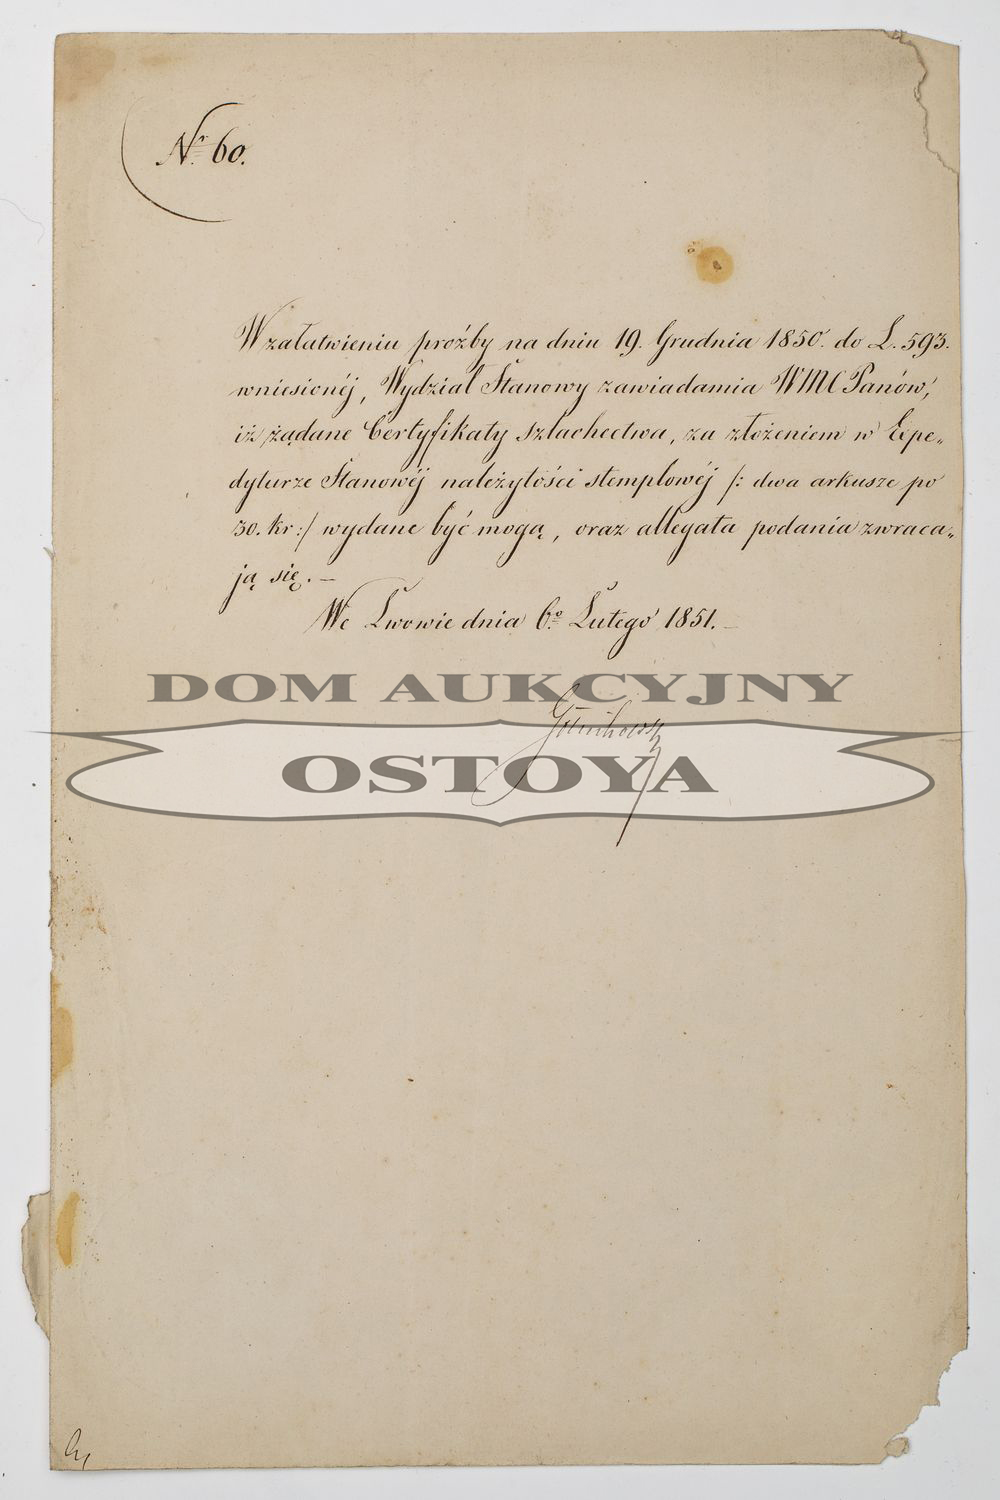 Nr 60.
W załatwieniu proźby na dniu 19. Grudnia 1850. do L. 593.
wniesionéj, Wydział Stanowy zawiadamia WMC Panów,
iż żądane Certyfikaty szlachectwa, za złożeniem w Expe„
dyturze Stanowéj należytości stemplowéj /: dwa arkusze po
30. kr :/ wydane być mogą, oraz allegata podania zwraca„
ją się. —
We Lwowie dnia 6o Lutego 1851. —
DOM AUKCYJNY
OSTOYA